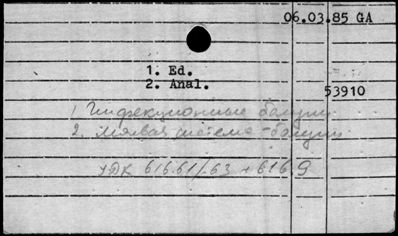 06.03.85 GA
1. Ed.
2. Anal.
53910
1. Инфекционные болезни
2. система - болезни
УДК 616.61/.63 + 616.9